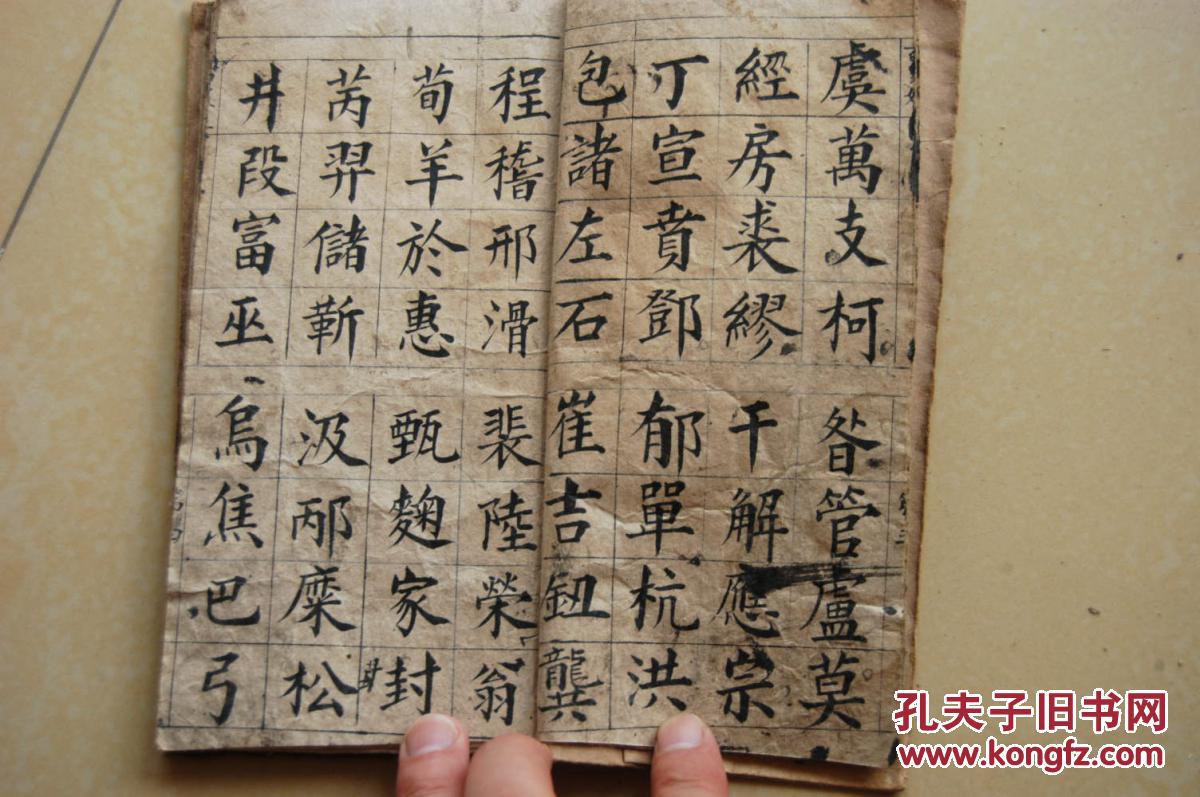 虞萬支柯昝管盧莫
經房裘繆干解應宗
丁宣賁鄧郁單杭洪
包諸左石崔吉鈕龔
程稽邢滑裴陸榮翁
荀羊於惠甄麴家封
芮羿儲靳汲邴糜松
井段富巫烏焦巴弓
孔夫子旧书网
www.kongfz.com